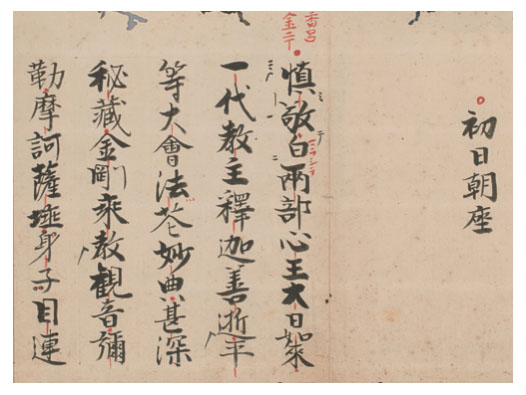 初日朝座
香呂
金二丁
慎敬白兩部心王大日如來
一代教主釋迦善逝平
等大會法花妙典甚深
秘藏金剛乘教観音彌
勒摩訶薩埵身子目連